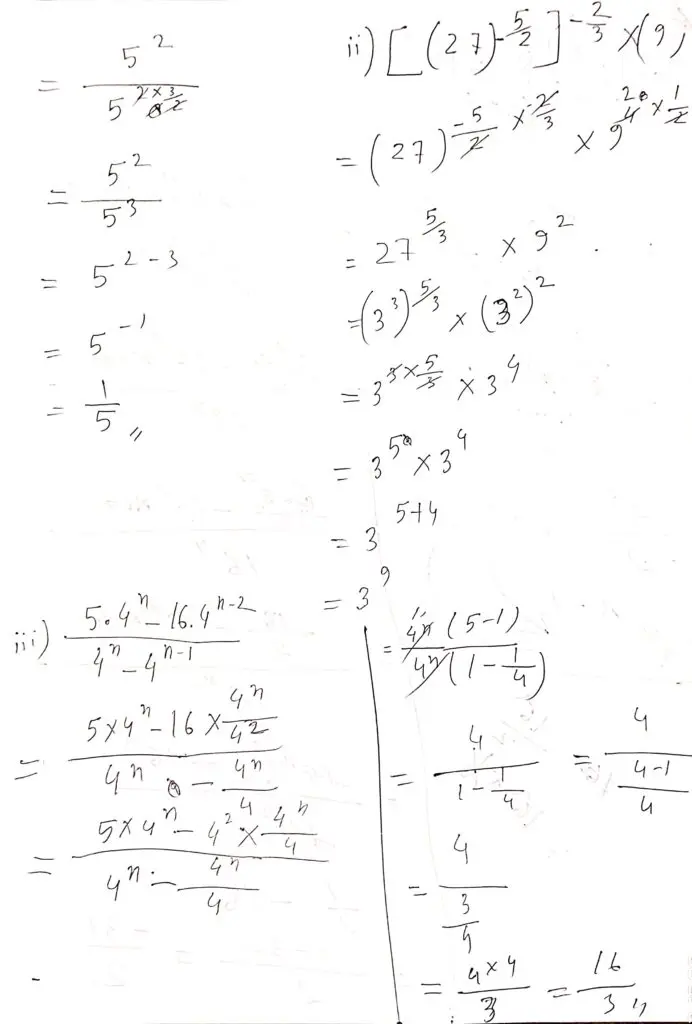 = 5^2 / 5^(2×3/2)
= 5^2 / 5^3
= 5^(2-3)
= 5^(-1)
= 1/5 〃
ii) [(27)^(-5/2)]^(-2/3) × (9)
= (27)^(-5/2 × -2/3) × 9^(4 × 1/2)
= 27^(5/3) . × 9^2 .
= (3^3)^(5/3) × (3^2)^2
= 3^(3×5/3) × 3^4
= 3^5 × 3^4
= 3^(5+4)
= 3^9
iii) (5.4^n - 16.4^(n-2)) / (4^n - 4^(n-1))
= (5×4^n - 16 × 4^n/4^2) / (4^n - 4^n/4)
= (5×4^n - 4^2 × 4^n/4) / (4^n - 4^n/4)
= 4^n (5-1) / 4^n (1 - 1/4)
= 4 / (1 - 1/4) = 4 / ((4-1)/4)
= 4 / (3/4)
= (4×4)/3 = 16/3 〃